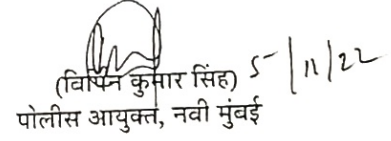 (विपिन कुमार सिंह) 5/11/22
पोलीस आयुक्त, नवी मुंबई